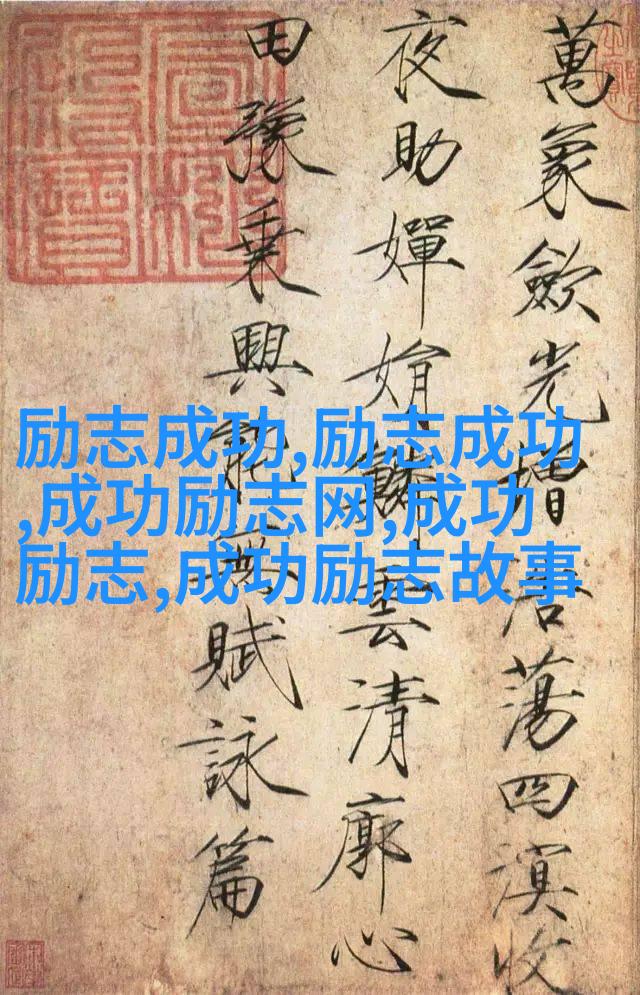 萬象歛光增浩蕩四溟收
夜助嬋娟鱗雲清廓心
田豫乗興能無賦詠篇
励志成功,励志成功
,成功励志网,成功
励志,成功励志故事